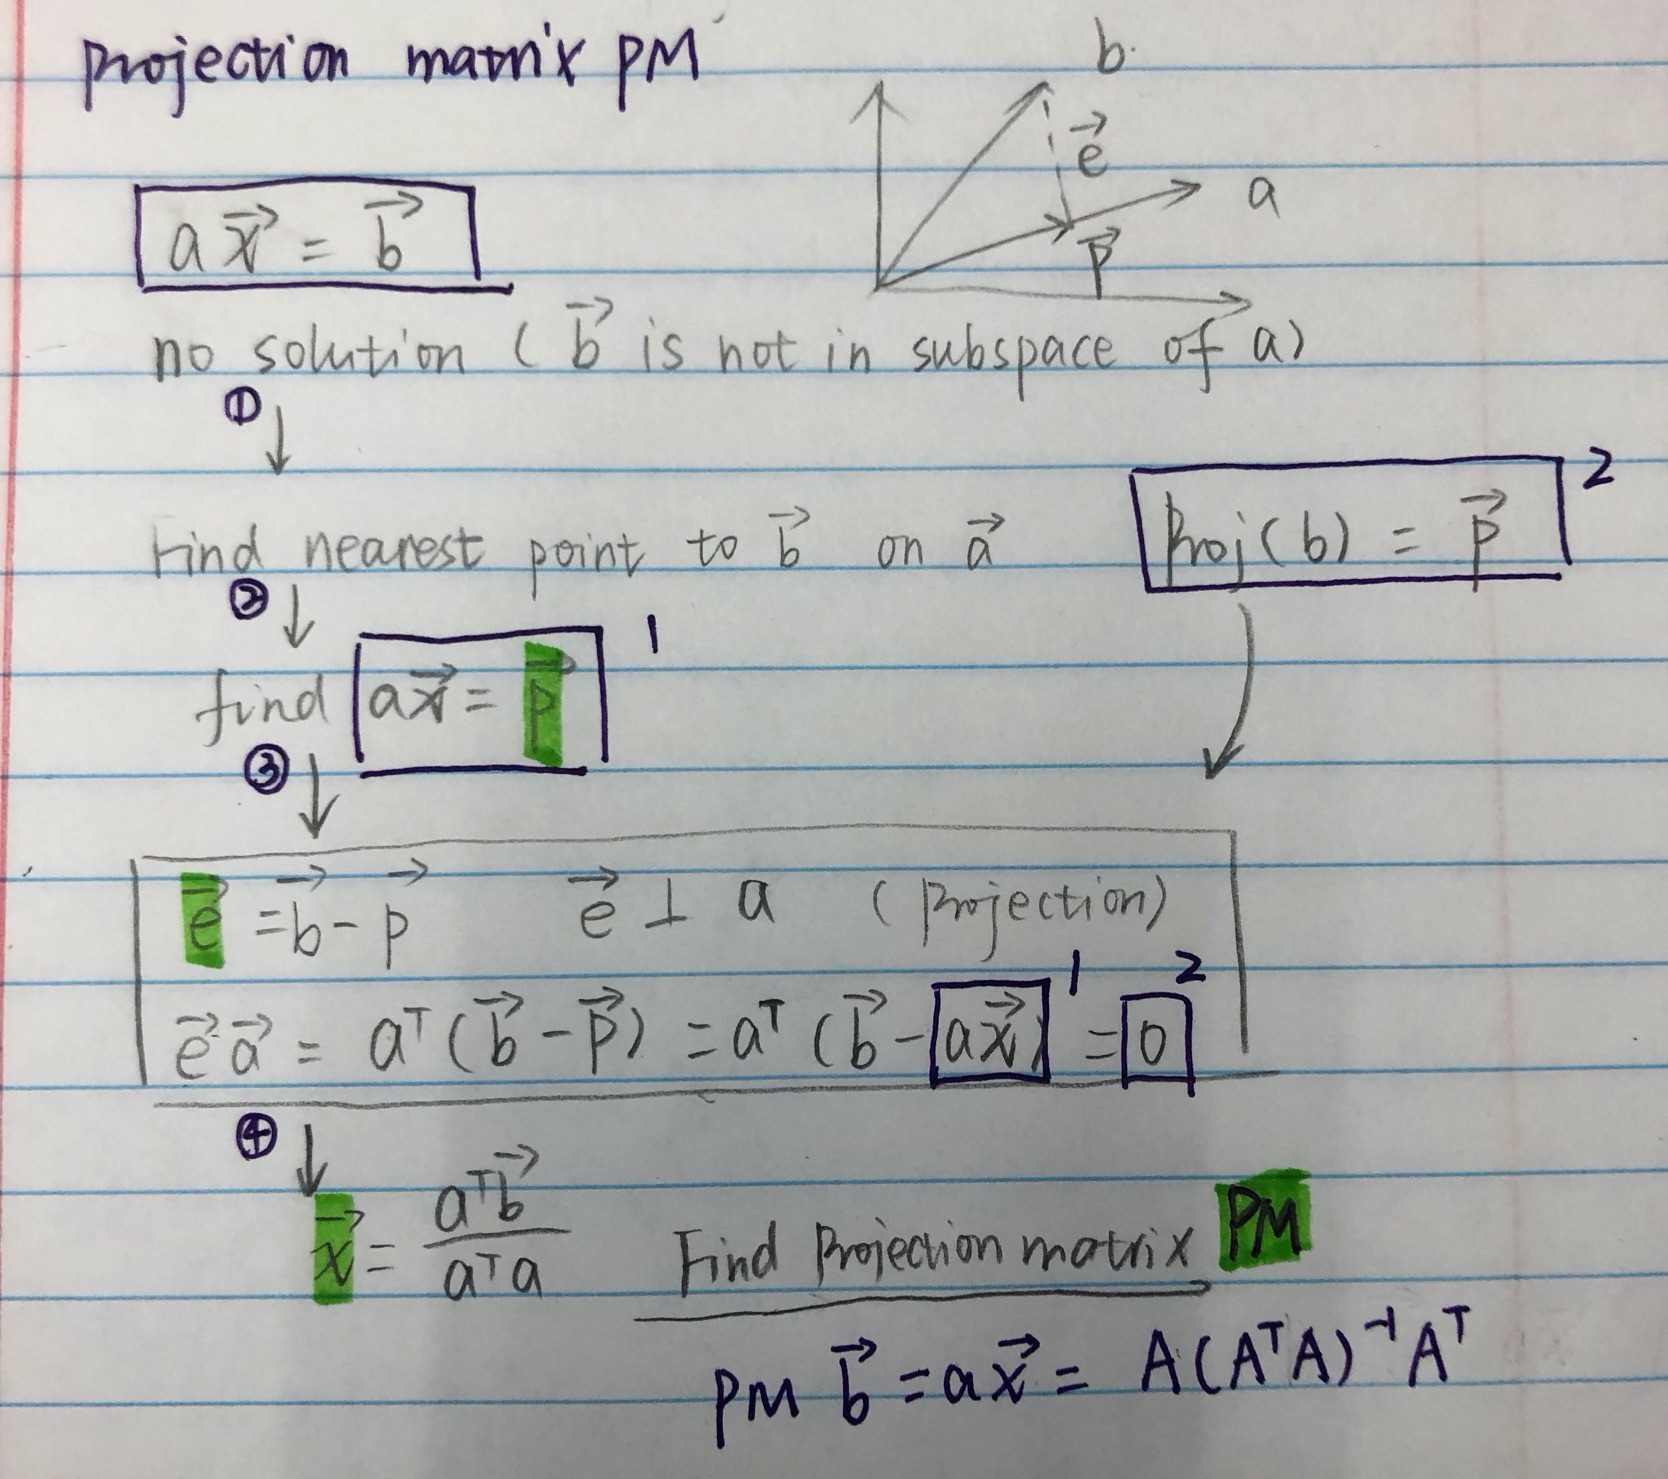 Projection matrix PM
b
e⃗
a
p⃗
a x⃗ = b⃗
no solution ( b⃗ is not in subspace of a⃗ )
① ↓
Find nearest point to b⃗ on a⃗
Proj(b) = p⃗ 2
② ↓
find a x⃗ = p⃗ 1
③ ↓
e⃗ = b⃗ - p⃗ e⃗ ⊥ a (Projection)
e⃗ a⃗ = aᵀ ( b⃗ - p⃗ ) = aᵀ ( b⃗ - a x⃗ ) 1 = 0 2
④ ↓
x⃗ = aᵀb⃗ / aᵀa Find Projection matrix PM
PM b⃗ = a x⃗ = A(AᵀA)⁻¹Aᵀ